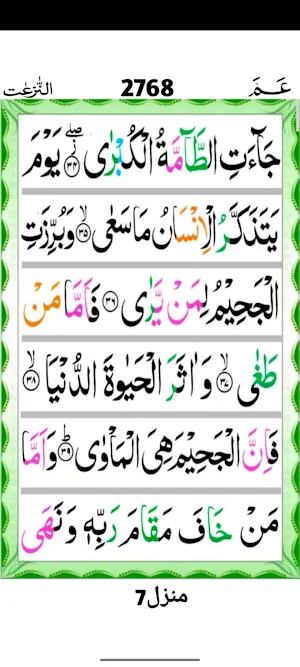 النّٰزعٰت 2768 عَمَّ
جَآءَتِ الطَّآمَّةُ الْكُبْرٰى ۖ۝۳۴ يَوْمَ
يَتَذَكَّرُ الْاِنْسَانُ مَا سَعٰى ۙ۝۳۵ وَبُرِّزَتِ
الْجَحِيْمُ لِمَنْ يَّرٰى ۝۳۶ فَاَمَّا مَنْ
طَغٰى ۙ۝۳۷ وَ اٰثَرَ الْحَيٰوةَ الدُّنْيَا ۙ۝۳۸
فَاِنَّ الْجَحِيْمَ هِيَ الْمَاْوٰى ؕ۝۳۹ وَ اَمَّا
مَنْ خَافَ مَقَامَ رَبِّهٖ وَ نَهَى
منزل 7